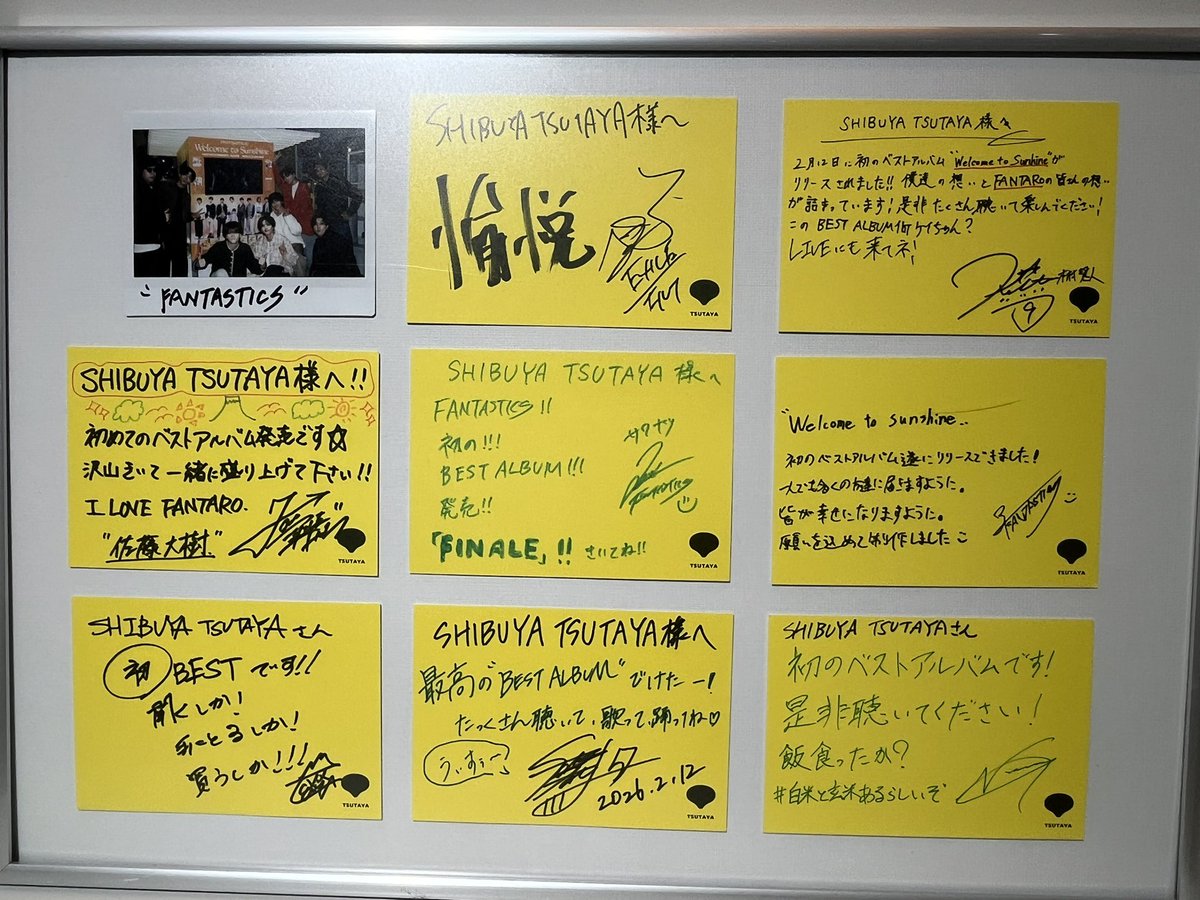 Welcome to Sunshine
"FANTASTICS"
SHIBUYA TSUTAYA様へ
愉悦
EXILE
TSUTAYA
SHIBUYA TSUTAYA様へ
2月12日に初のベストアルバム"Welcome to Sunshine"が
リリースされました!! 僕達の想いとFANTAROの皆さんの想い
が詰まっています! 是非たくさん聴いて楽しんでください!
このBEST ALBUM何ケイちゃん?
LIVEにも来てネ!
9
TSUTAYA
SHIBUYA TSUTAYA様へ!!
初めてのベストアルバム発売です☆
沢山きいて一緒に盛り上げて下さい!!
I LOVE FANTARO.
"佐藤大樹"
TSUTAYA
SHIBUYA TSUTAYA 様へ
FANTASTICS!!
初の!!!
BEST ALBUM!!!
発売!!
「FINALE」!! きいてね!!
サワナツ
FANTASTICS
TSUTAYA
"Welcome to sunshine"
初のベストアルバム遂にリリースできました!
一人でも多くの方達に届きますように。
皆が幸せになりますように。
願いを込めて制作しました
FANTASTICS
TSUTAYA
SHIBUYA TSUTAYAさん
初 BESTです!!
聴くしか!
手にとるしか!
買うしか!!!
TSUTAYA
SHIBUYA TSUTAYA様へ
最高の"BEST ALBUM"できたー!
たっくさん聴いて、歌って、踊ってね♡
うぃすぅー
2026.2.12
TSUTAYA
SHIBUYA TSUTAYAさん
初のベストアルバムです!
是非聴いてください!
飯食ったか?
#白米と玄米あるらしいぞ
TSUTAYA